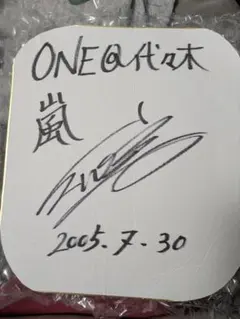 ONE@代々木
嵐
2005.7.30